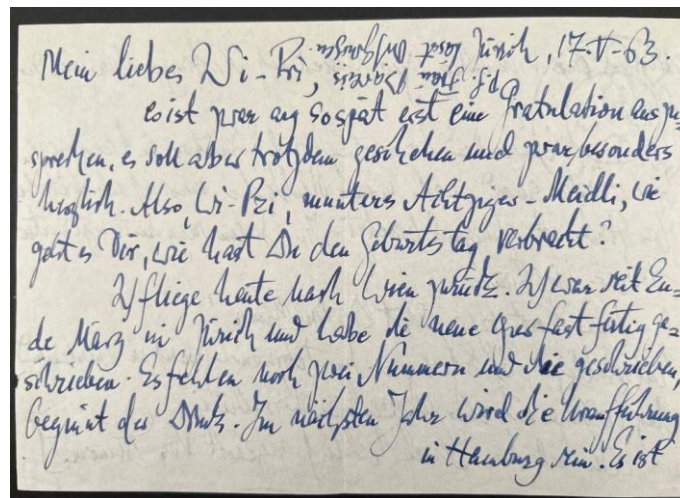 Mein liebes Wi-Pzi, Zürich, 17-V-63.
es ist zwar arg so spät erst eine Gratulation auszu
sprechen, es soll aber trotzdem geschehen und zwar besonders
herzlich. Also, Wi-Pzi, munteres Achtziger-Meidli, wie
geht es Dir, wie hast Du den Geburtstag verbracht?
Ich fliege heute nach Wien zurück. Ich war seit En=
de März in Zürich und habe die neue Oper fast fertig ge=
schrieben. Es fehlen noch zwei Nummern und die geschrieben,
beginnt der Druck. Im nächsten Jahr wird die Uraufführung
in Hamburg sein. Es ist
Frau lässt